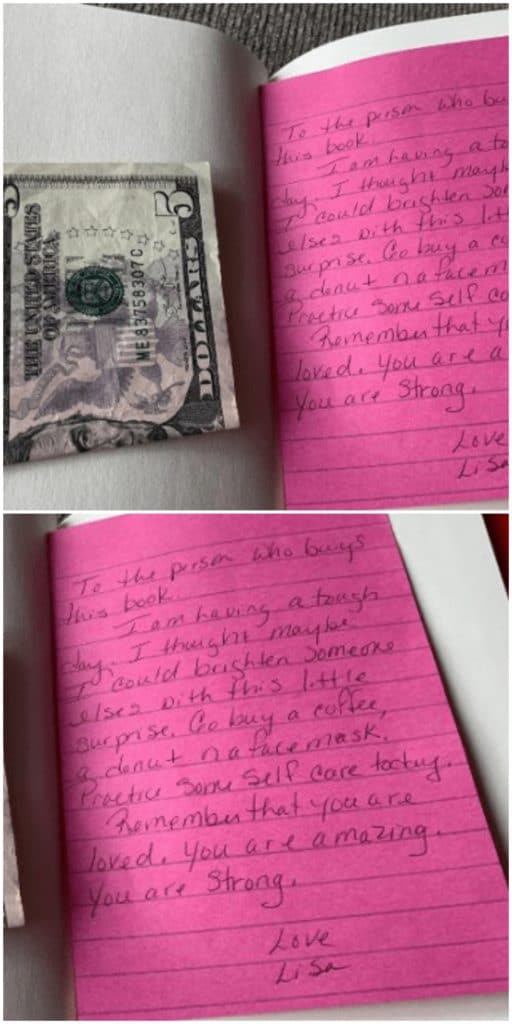 5
THE UNITED STATES
OF AMERICA
ME83758307C
5
DOLLARS
To the person who bu
this book.
I am having a to
day. I thought mayb
I could brighten Som
elses with this litt
Surprise. Go buy a co
a donut n a face m
Practice Some Self ca
Remember that y
loved. You are a
You are Strong.
Love
Lisa
To the person who buys
this book.
I am having a tough
day. I thought maybe
I could brighten Someone
elses with this little
Surprise. Go buy a coffee,
a donut n a face mask.
Practice Some Self care today.
Remember that you are
loved. You are amazing.
You are Strong.
Love
Lisa